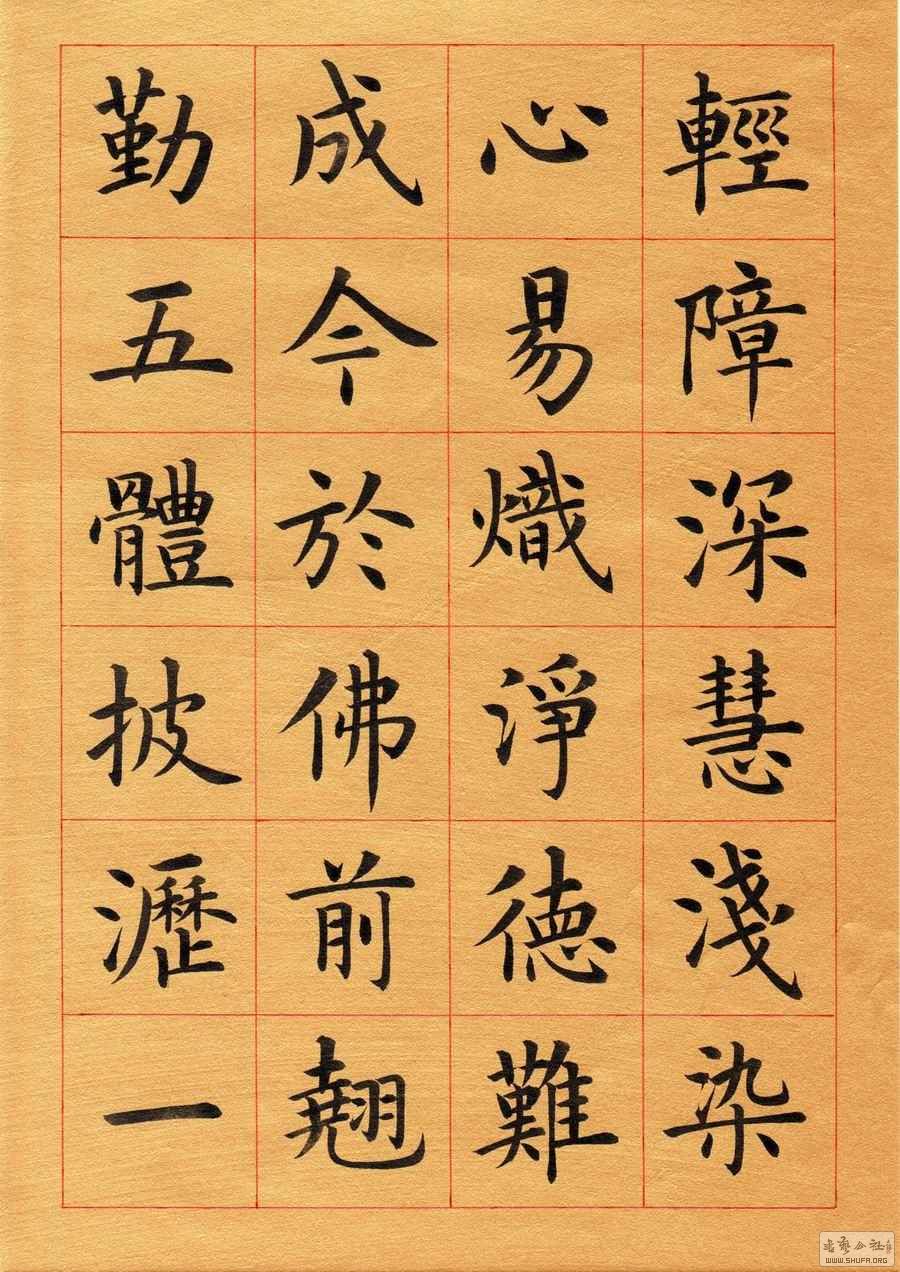 輕障深慧淺染
心易熾淨德難
成今於佛前翹
勤五體披瀝一
WWW.SHUFA.ORG